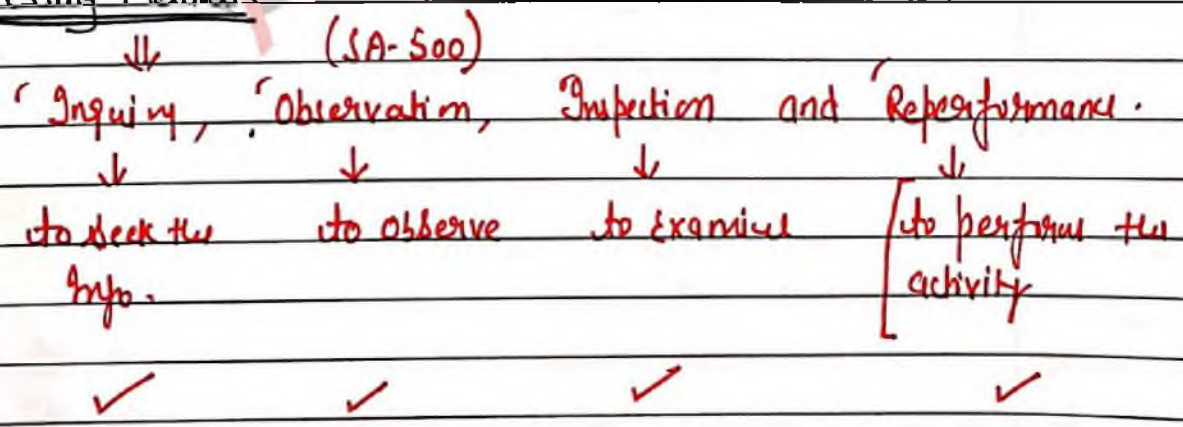 (SA-500)
Inquiry, Observation, Inspection and Reperformance.
to seek the to observe to examine to perform the
Info. activity